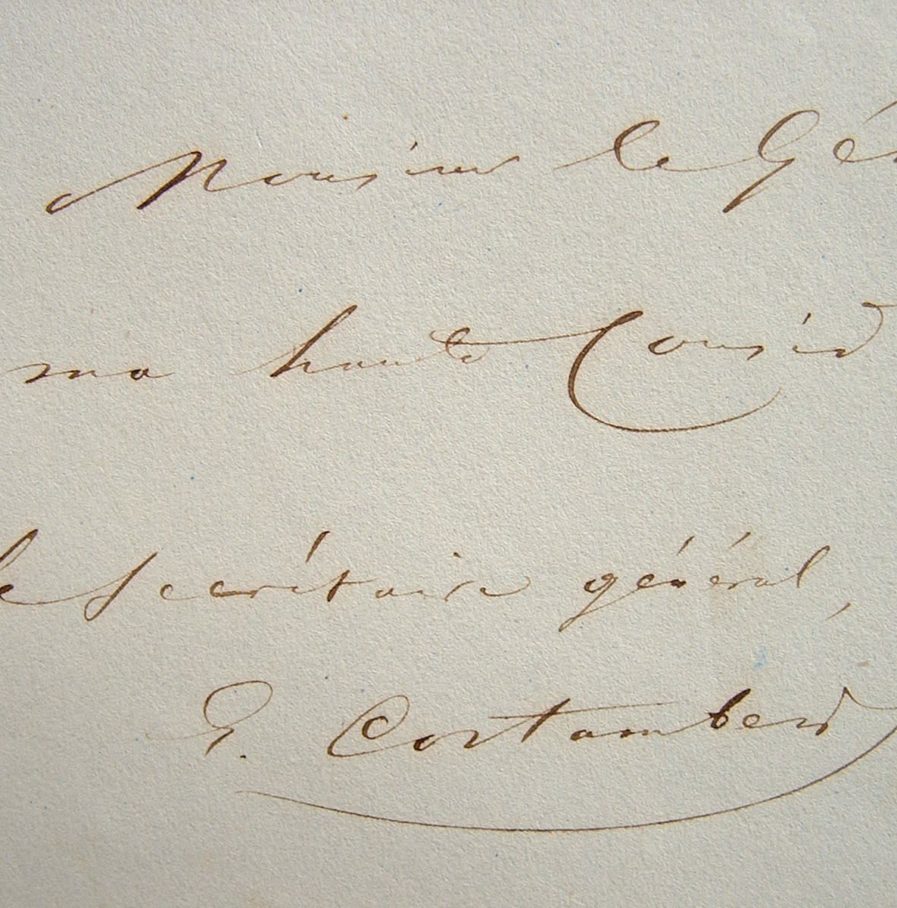 Monsieur le Gé
ma haute Consid
le secrétaire général,
E. Cortambert